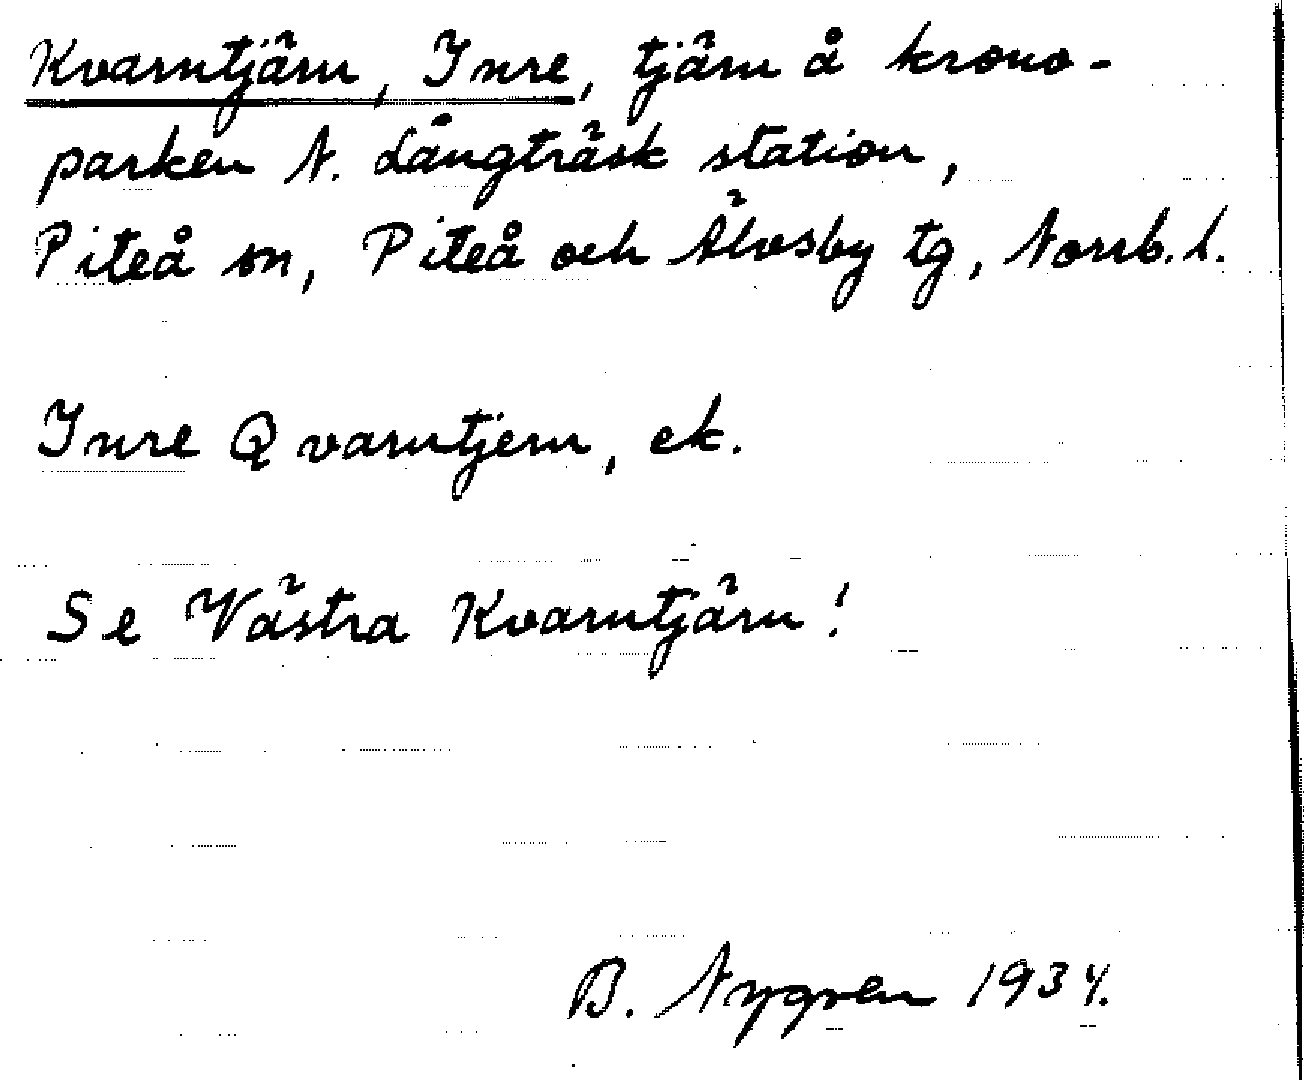 Kvarntjärn, Inre, tjärn å krono-
parken N. Långträsk station,
Piteå sn, Piteå och Älvsby tg, Norrb. l.
Inre Qvarntjern, ek.
Se Västra Kvarntjärn!
B. Nygren 1934.